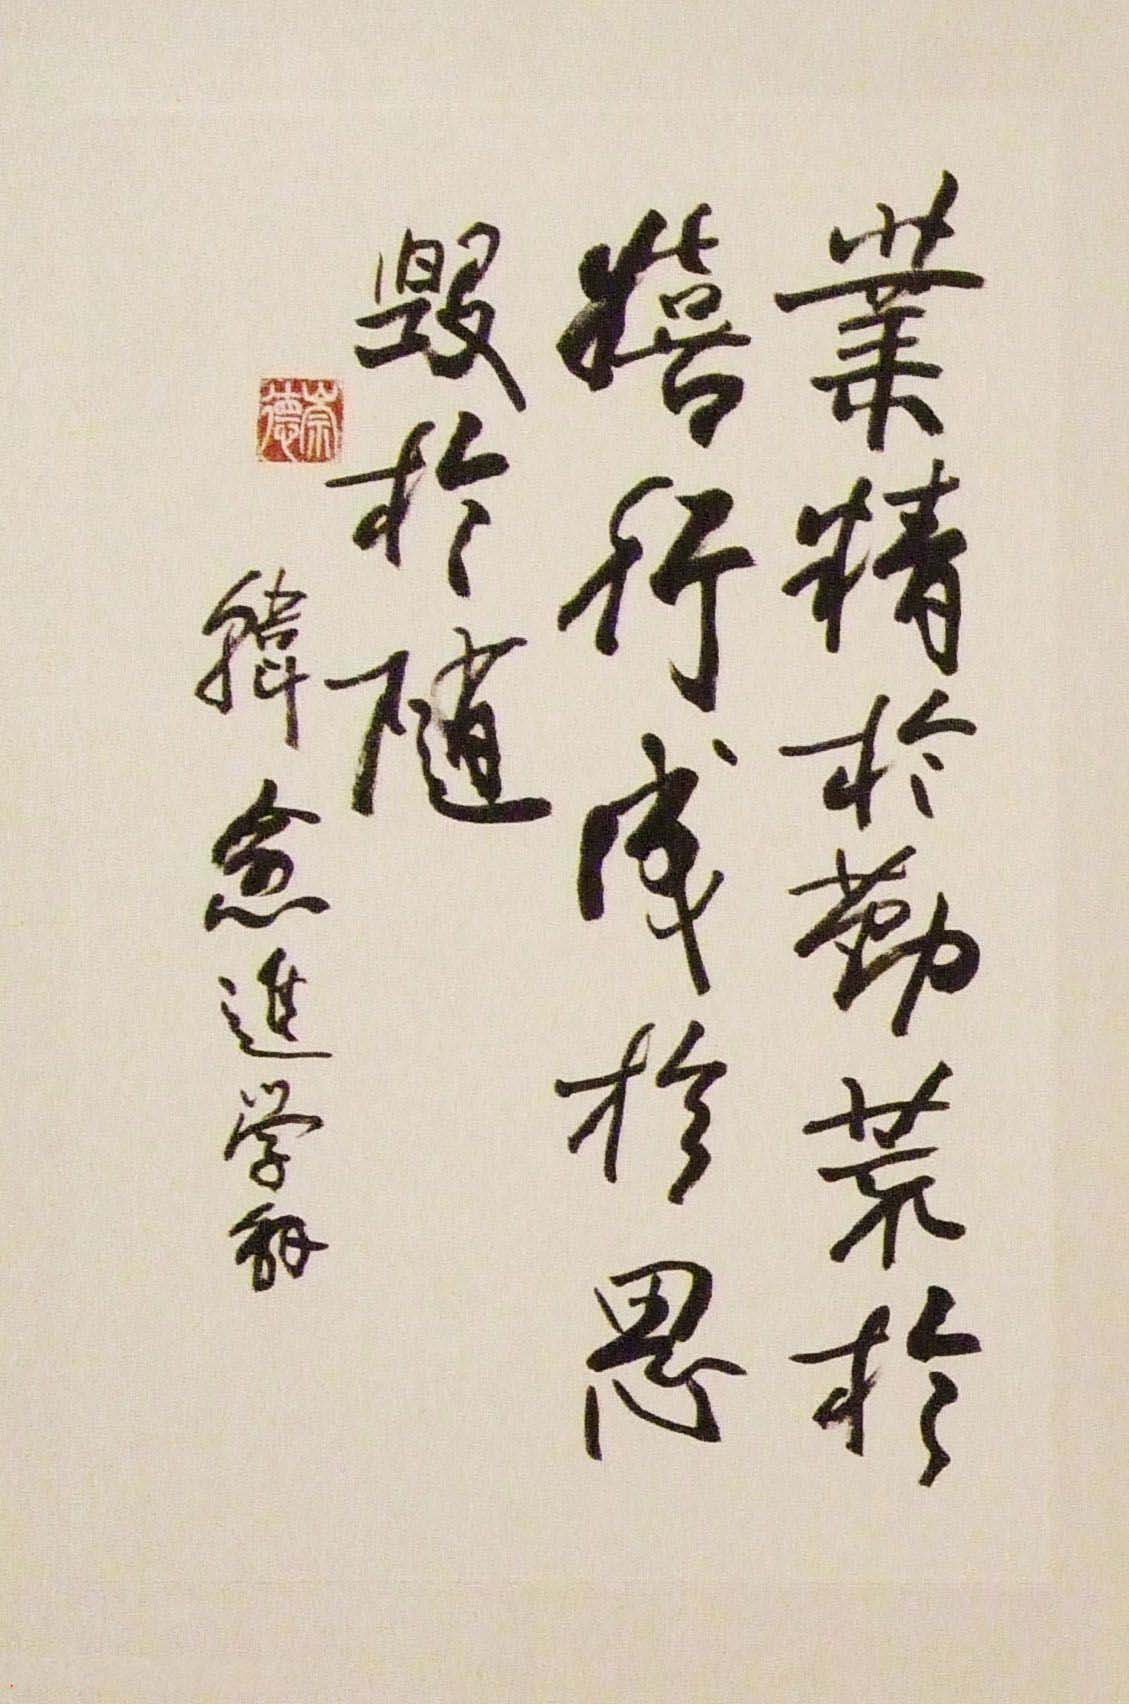 業精於勤荒於
嬉行成於思
毀於随
韓愈進学解
崇德